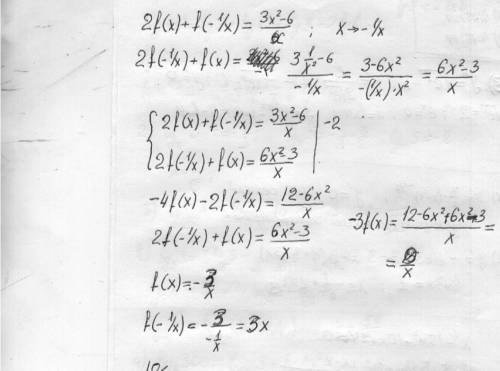 2f(x)+f(-1/x)=(3x²-6)/x ; x→-1/x
2f(-1/x)+f(x)= (3 1/x²-6)/(-1/x) = (3-6x²)/(-(1/x)·x²) = (6x²-3)/x
{2f(x)+f(-1/x)=(3x²-6)/x |-2
2f(-1/x)+f(x)=(6x²-3)/x
-4f(x)-2f(-1/x)=(12-6x²)/x
2f(-1/x)+f(x)=(6x²-3)/x
-3f(x)=(12-6x²+6x²-3)/x=
=9/x
f(x)=-3/x
f(-1/x)=-3/(-1/x)=3x